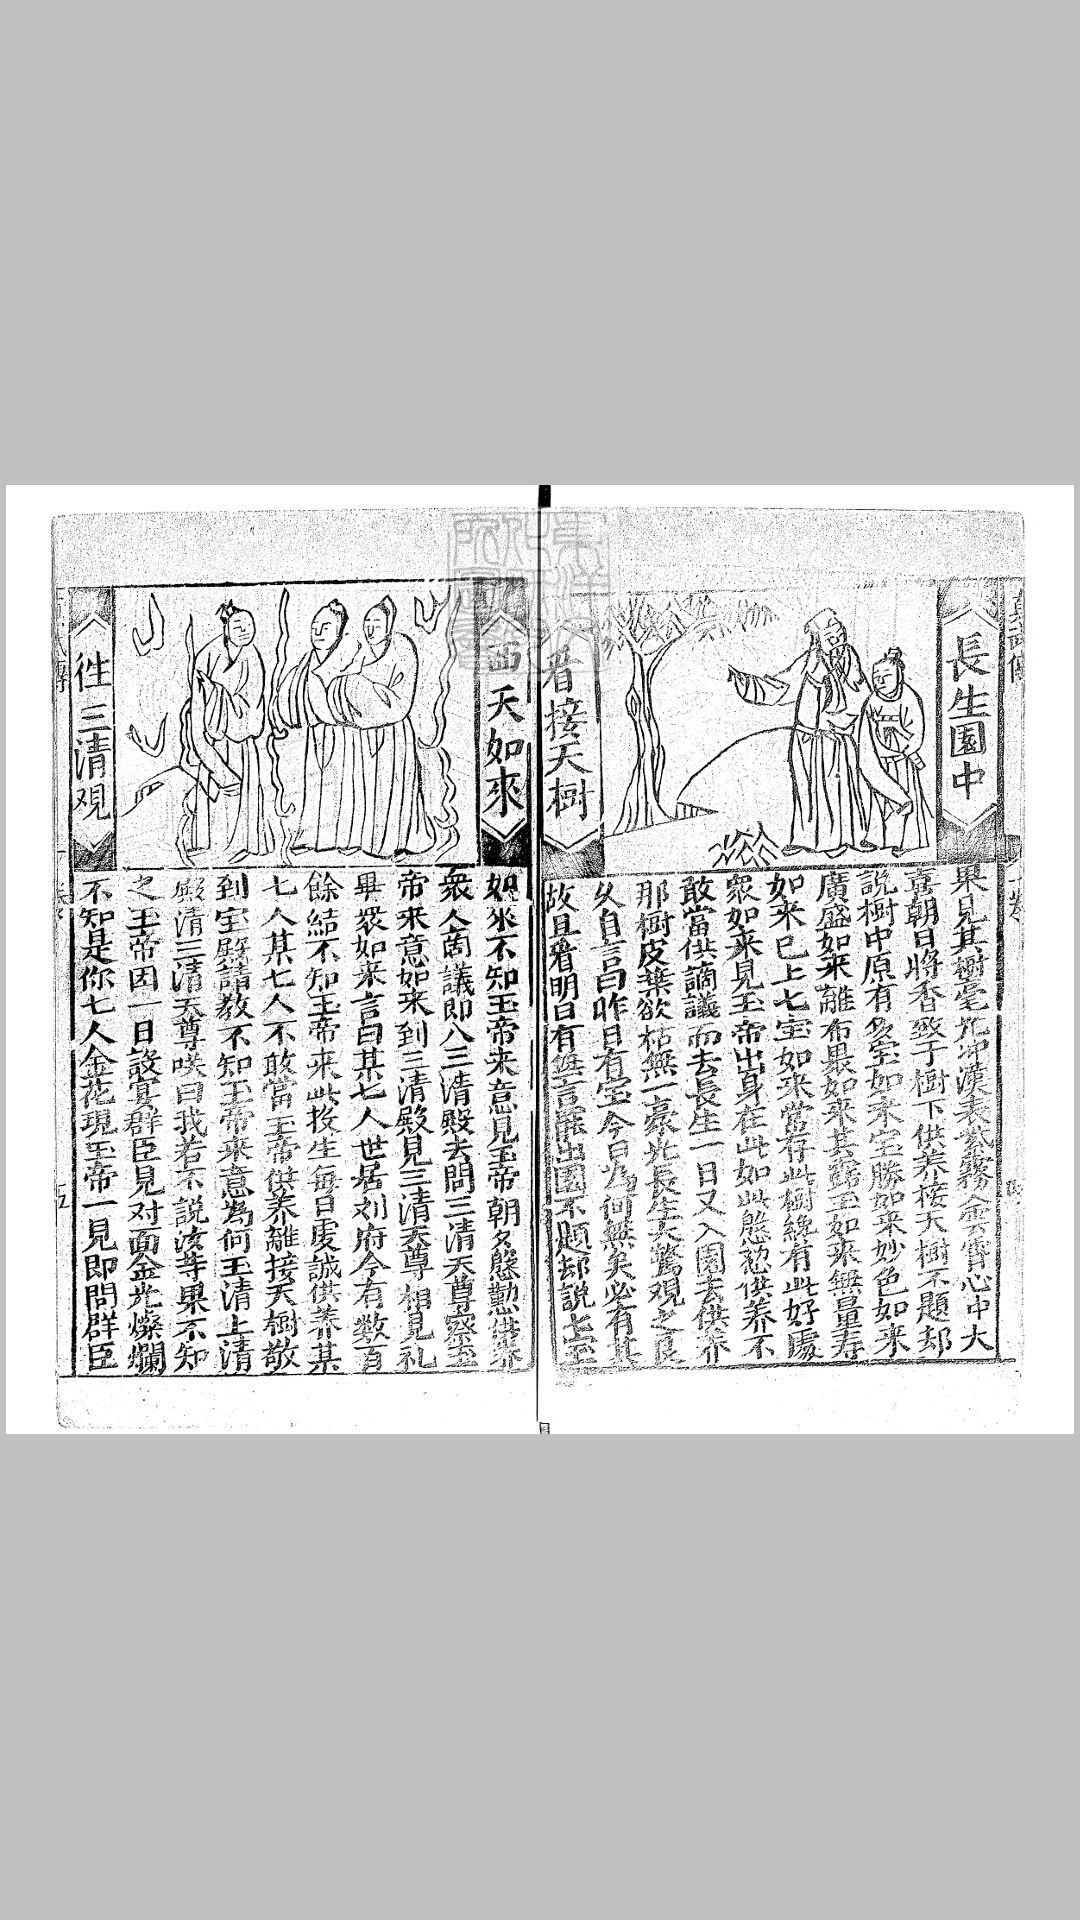 長生園中
看接天樹
果見其樹毫光沖漢表紫霧金雲霄心中大
喜朝日將香致于樹下供养接天樹不題却
説樹中原有多宝如来宝勝如来妙色如来
廣盛如来離布畏如来甘露王如来無量寿
如来已上七宝如来常存此樹纔有此好處
衆如来見玉帝出身在此如此慇懃供养不
敢當供謫議而去長生一日又入園去供养
那樹皮葉欲枯無一豪光長生大驚觀之良
久自言曰昨日有宝今日為何無矣必有其
故且看明日有無言罷出園不題却説七宝
西天如來
往三清观
如來不知玉帝来意見玉帝朝夕慇懃供养
衆人商議即入三清殿去問三清天尊察玉
帝来意如来到三清殿見三清天尊相見礼
畢衆如来言曰某七人世居刘府今有数百
餘結不知玉帝来此投生每日虔誠供养某
七人某七人不敢當玉帝供养離接天樹敬
到宝殿請教不知玉帝来意為何玉清上清
殿清三清天尊唤曰我若不説汝等果不知
之玉帝因一日設宴群臣見对面金光燦爛
不知是你七人金花現玉帝一見即問群臣